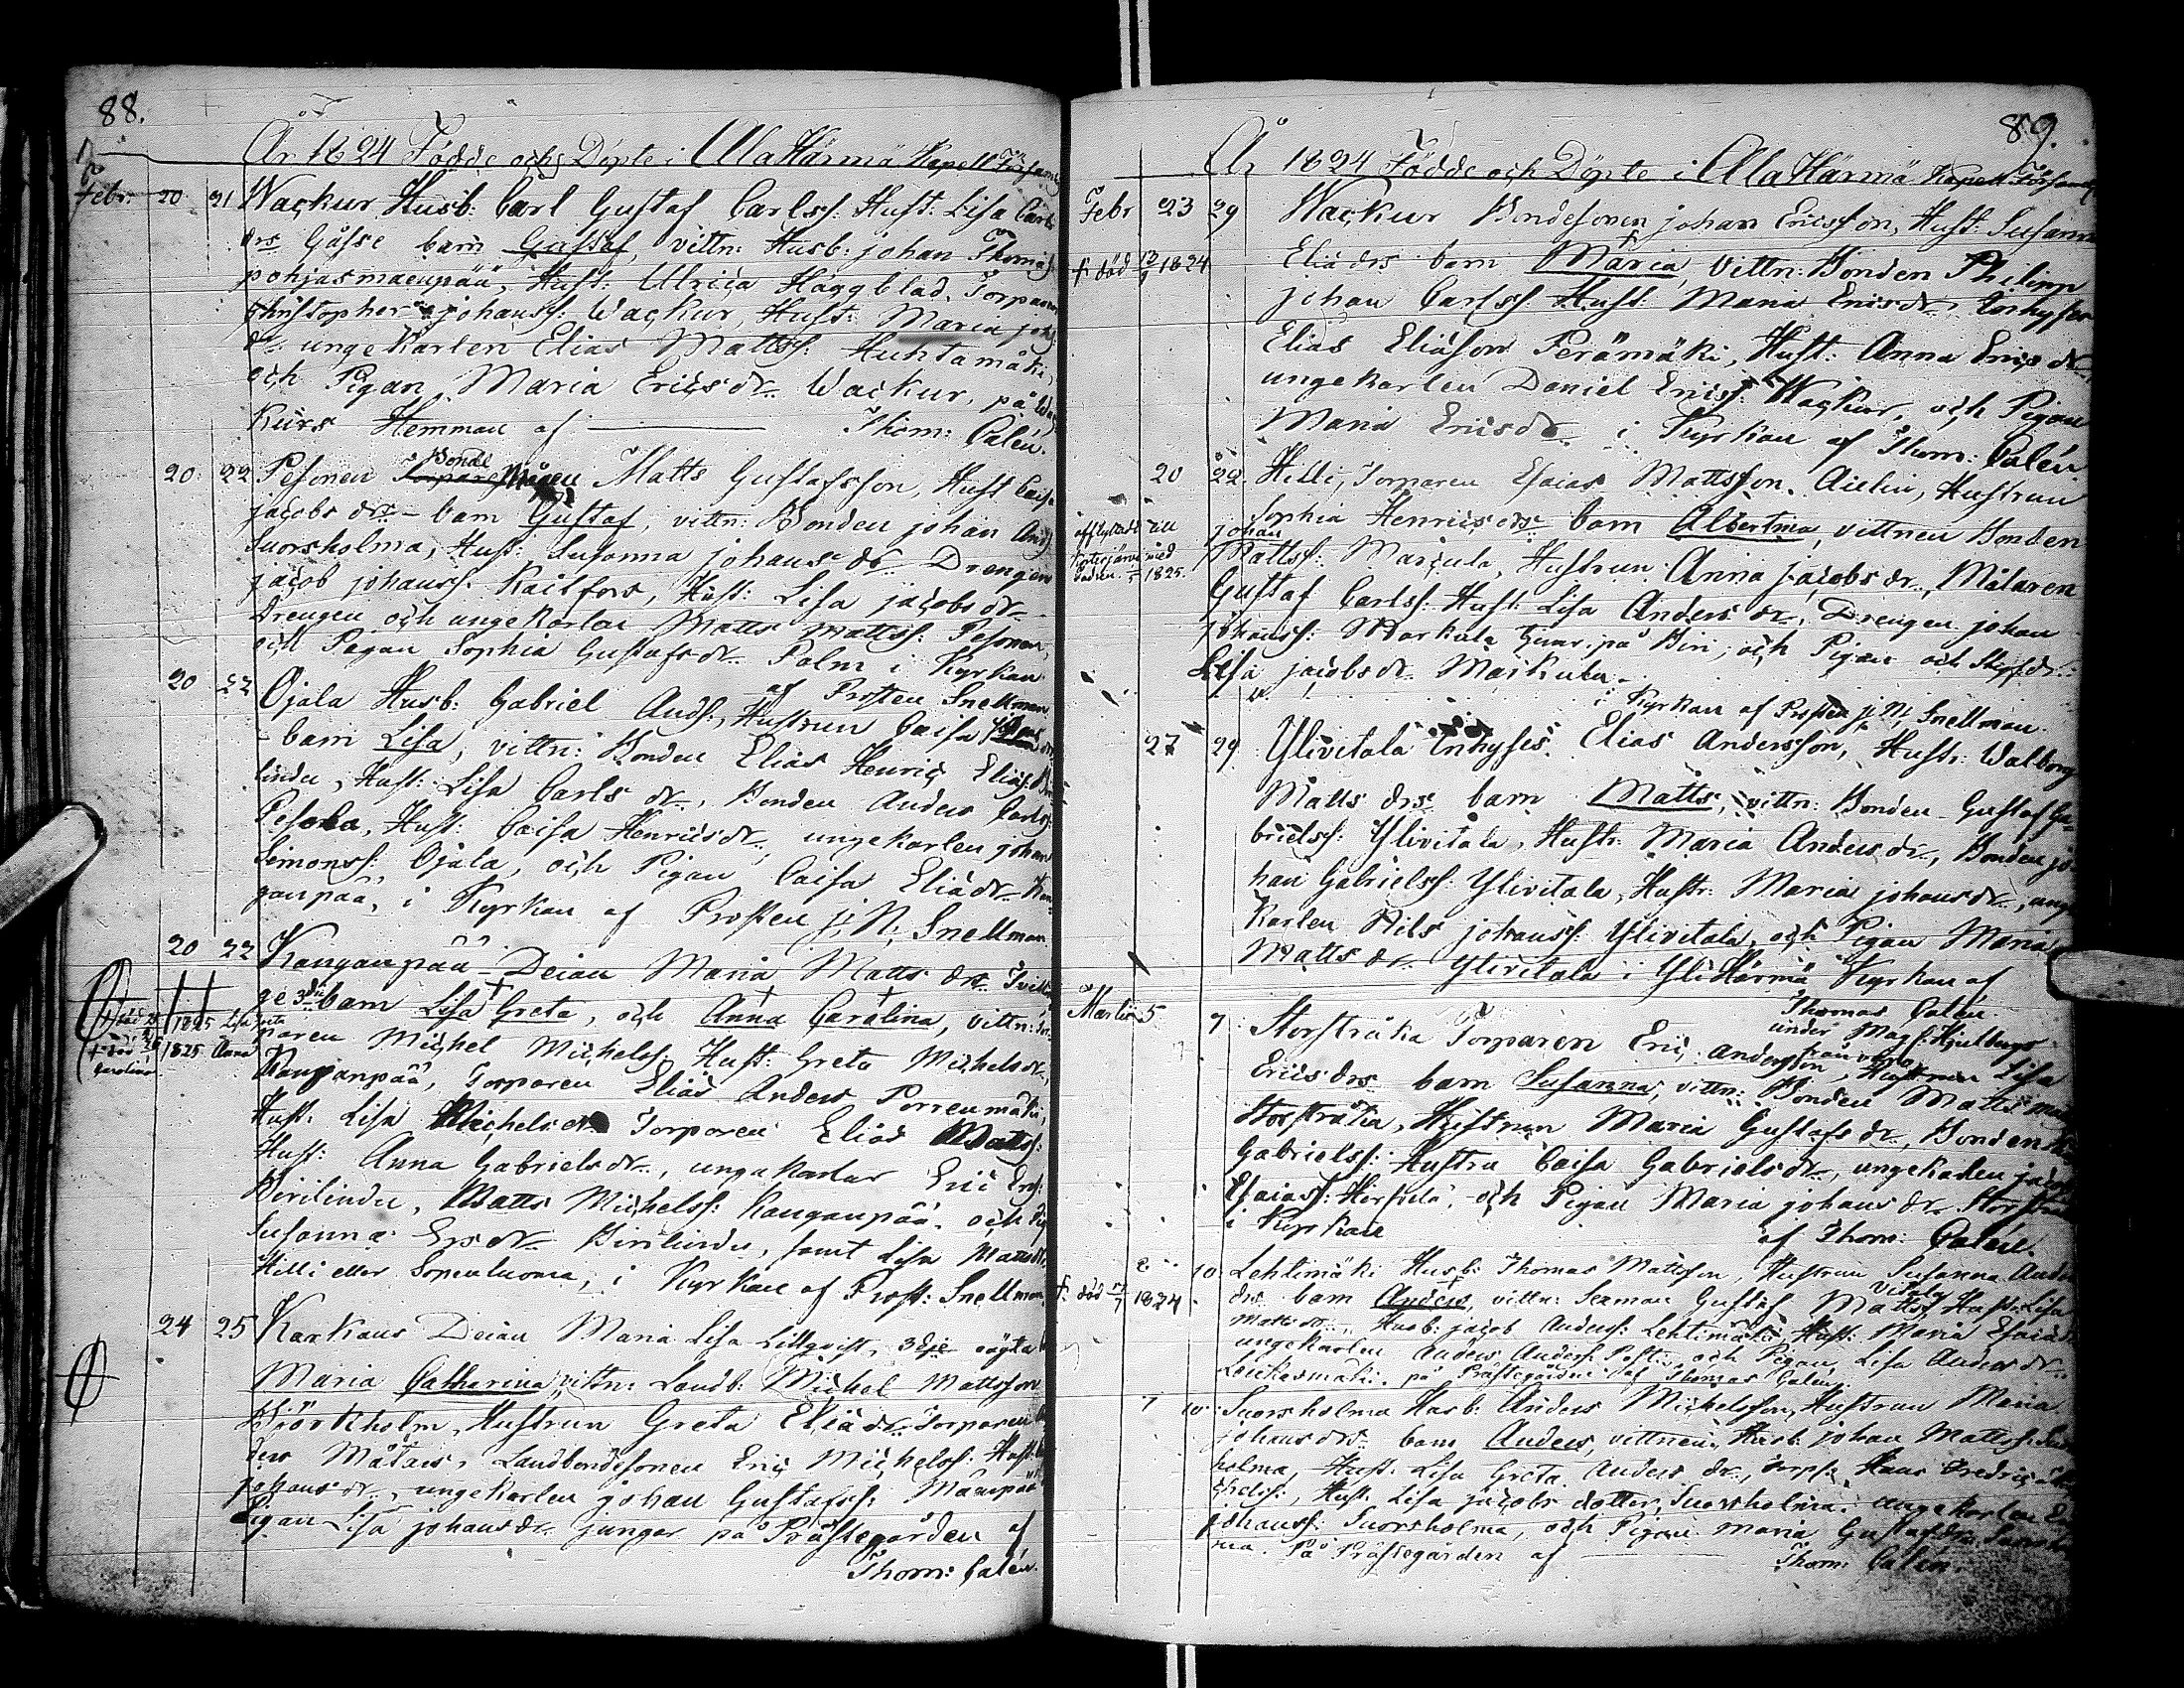 88.
År 1824 Födde och Döpte i Ala Härmä Kapell Församl
Febr. 20 21 Wackur Husb: Carl Gustaf Carlss: Hust: Lisa Carls
drs Gåsse barn Gustaf, vittn: Husb: johan Thomæs:
pohjasmaenpää, Hust: Ulrica Häggblad, Torparen
Christopher johanss: Wackur, Hust: Maria joh
dr ungekarlen Elias Mattss: Huhtamäki,
och Pigan Maria Ericsdr Wackur, på Wac
kurs Hemman af Thom: Calén.
20 22 Pesonen Bonde Mågen Matts Gustafsson, Hust Caisa
jacobs drs barn Gustaf, vittn: Bonden johan Ands
Suorsholma, Hust: Susanna johans dr Drengen
jacob johanss: Kailfors, Hust: Lisa jacobs dr
Drengen och ungekarlen Matts Mattss: Pesonen,
och Pigan Sophia Gustafs dr Palm i Kyrkan
af Prosten Snellman
20 22 Ojala Husb: Gabriel Ands:, Hustrun Caisa
barn Lisa, vittn: Bonden Elias Henric Eliæs:
lindu, Hust: Lisa Carls dr, Bonden Anders Carlss:
Pesola, Hust: Caisa Henricsdr, ungekarlen johan
Simonss: Ojala, och Pigan Caisa Eliædr Kan
ganpää, i Kyrkan af Prosten j: N: Snellman
20 22 Kanganpää Deian Maria Matts drs Tvillin
ge 3die barn Lisa Greta, och Anna Carolina, vittn: Tor
† död 1825 Lisa Greta
paren Michel Michelss: Hust: Greta Michelsdr,
† död 1825 Anna
Carolina
Kanganpää, Torparen Elias Anders Porrenmäki,
Hust: Lisa Michelsdr Torparen Elias Mattss:
Hust: Anna Gabrielsdr, ungakarlar Eric Ers:
Birilindu, Matts Michelss: Kanganpää, och Pig
Susanna Ersdr Birilindu, samt Lisa Mattsdr
Hilli eller Sopenluoma, i Kyrkan af Prost: Snellman.
24 25 Karhaus Deian Maria Lisa Lillqvist, 3dje oägta
Maria Catharina, vittn: Landb: Michel Mattsson
Björkholm, Hustrun Greta Eliædr Torparen
ders Måtars, Landbondesonen Eric Michelss: Hust:
johansdr, ungekarlen johan Gustafss: Mäenpää
Pigan Lisa johansdr jungar på Prästegården af
Thom: Calén.
89.
År 1824 Födde och Döpte i Ala Härmä Kapell Församl
Febr 23 29 Wackur Bondesonen johan Ericsson, Hust: Susanna
† död 12/9 1824
Eliædrs barn Maria, vittn: Bonden Philipp
johan Carlss: Hust: Maria Ericsdr Inhyses
Elias Eliæson Perämäki, Hust: Anna Erics dr,
ungekarlen Daniel Ericss: Wackur, och Pigan
Maria Ericsdr i Kyrkan af Thom: Calén
20 22 Hilli, Torparen Esaias Mattsson Aielin, Hustrun
afflyttade till
Kortesjärvi med
1825.
Sophia Henricsdrs barn Albertina, vittnen Bonden
johan
Mattss: Marcula, Hustrun Anna jacobs dr, Målaren
Gustaf Carlss: Hust: Lisa Anders dr, Drengen johan
johanss: Markula på Biri, och Pigan och
Lisa jacobsdr Markula.
i Kyrkan af Prosten j: N: Snellman
27 29 Ylivitala Inhyses Elias Andersson, Hustr: Walborg
Matts drs barn Matts, vittn: Bonden Gustaf Ga-
brielss: Ylivitala, Hustr: Maria Anders dr, Bonden jo-
han Gabrielss: Ylivitala, Hustr: Maria johansdr, unge
karlen Nils johanss: Ylivitala, och Pigan Maria
Matts dr Ylivitala i Yli Härmä Kyrkan af
Thomas Calén.
under Mag: Hjelbergs
från varo
Martii 5 7 Storsträka Torparen Eric Andersson, Hustrun Lisa
Ericsdrs barn Susanna, vittn: Bonden Matts
Storsträka, Hustrun Maria Gustafs dr, Bonden
Gabrielss: Hustru Caisa Gabrielsdr, ungekarlen jacob
Esaiass: Hirsilä, och Pigan Maria johans dr Stors
i Kyrkan af Thom: Calén.
10 Lehtimäki Husb: Thomas Mattsson, Hustrun Susanna Ande
† död 1824
drs barn Anders, vittn: Sexman Gustaf Mattss Vitala Hust: Lisa
Mattsdr, Husb: jacob Anderss: Lehtimäki, Hust: Maria Esaiæd
ungekarlen Anders Anderss: Posti, och Pigan Lisa Andersdr
Loukasmäki. på Prästegården af Thomas Calén.
7 10 Suorsholma Husb: Anders Michelsson, Hustrun Maria
johansdrs barn Anders, vittnen Husb: johan Mattss: Suors
holma, Hust: Lisa Greta Anders dr, Torp: Hans Fredric
chelss:, Hust: Lisa jacobs dotter, Suorsholma, ungekarlen
johanss: Suorsholma, och Pigan Maria Gustafsdr Suorshol
ma. På Prästegården af Thom: Calén.